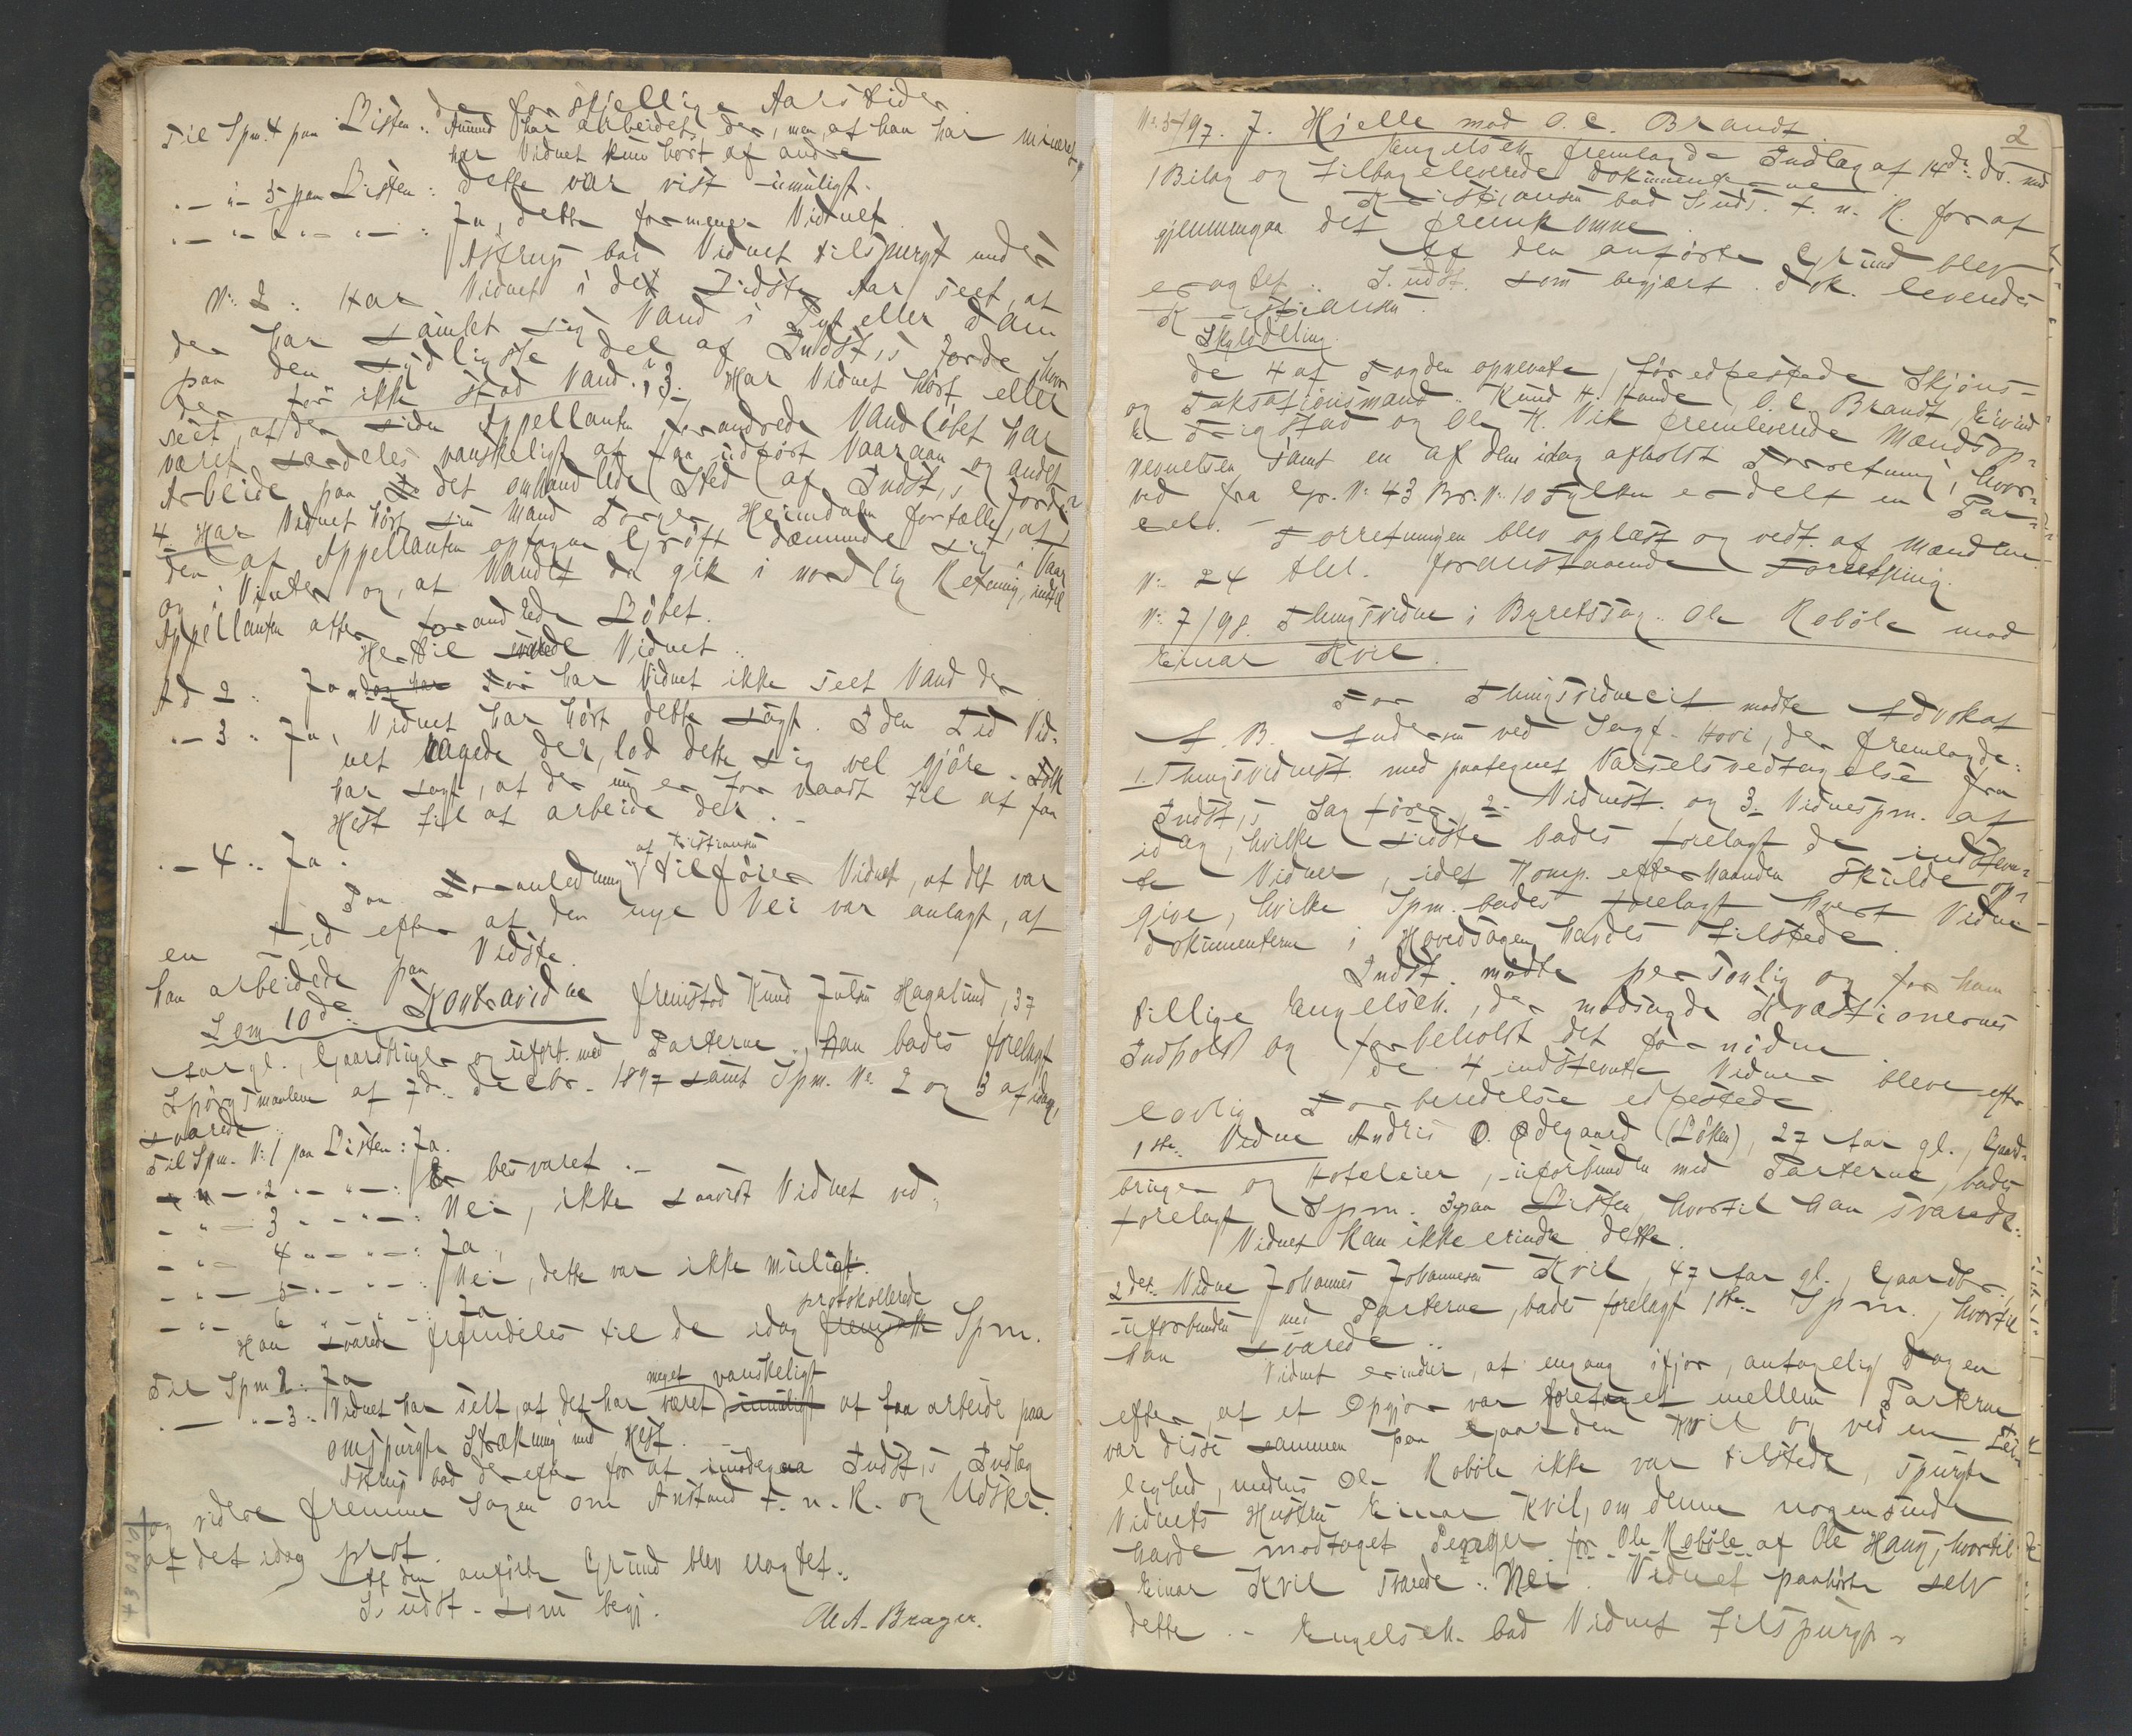 de forskjellige Aarstider
Til Spm. 4 paa Listen: Amund har arbeidet der, men at han har
har Vidnet kun hørt af andre
" 5 paa Listen: dette var vist umuligt.
" 6 " " : Ja, dette formener Vidnet
Astrup bad Vidnet tilspurgt under
No. 2: Har Vidnet i det sidste Aar seet, at
der har samlet sig Vand i Pyt eller Dam
paa den sydligste del af Indst.s Jorde, hvor
der før ikke stod Vand? 3. Har Vidnet hørt eller
seet, at der siden Appellanten forandrede Vandløbet har
været særdeles vanskeligt at faa udført Vaaraan og andet
Arbeide paa det omhandlede Sted af Indst.s Jorde?
4. Har Vidnet hørt sin Mand Torger Heimdalen fortælle, at
den af Appellanten optagne Grøft dæmmede sig i Vaar
og i Vinter og, at Vandet da gik i nordlig Retning, indtil
Appellanten atter forandrede Løbet.
Hertil svarede Vidnet:
Ad 2: Ja, dog har Før har Vidnet ikke seet Vand der
" - 3: Ja, Vidnet har hørt dette sagt. I den Tid Vid-
net vagede der, lod dette sig vel gjøre. Folk
har sagt, at der nu er for vaadt til at faa
Hest til at arbeide der. -
" - 4: Ja.
af Kristiansen
Paa Foranledning tilføier Vidnet, at det var
en Tid efter at den nye Vei var anlagt, at
han arbeidede paa Vidste.
Som 10de Kontravidne fremstod Knud Julsen Hagalund, 37
Aar gl., Gaardbruger og uforb. med Parterne. Han bades forelagt
Spørgsmaalene af 7de Decbr. 1897 samt Spm. No. 2 og 3 af idag,
svarede:
Til Spm. No. 1 paa Listen: Ja.
" - 2 " - " : Er besvaret. -
" - 3 " - " : Nei, ikke saavidt Vidnet ved,
" - 4 " - " : Ja,
" - 5 " - " : Nei, dette var ikke muligt.
" - 6 " " : Ja
protokollerede
Han svarede fremdeles til de idag fremsatte Spm.
Til Spm 2: Ja
meget vanskeligt
" - 3: Vidnet har selt, at det har været umuligt at faa arbeide paa
omspurgte Strækning med Hest.
Astrup bad derefter for at imødegaa Indst.s Indlæg
og videre fremme Sagen om Anstand t. n. R. og Udskr.
af det idag prot.
Af den anførte Grund blev eragtet:
S. udst. som begj.
Ole A. Brager.
43 08'0
2
No. 35/97. J. Hjelle mod O. C. Brandt.
Engelsch. fremlagde Indlæg af 14de ds. med
1 Bilag og tilbageleverede Dokumenterne
Kristiansen bad S. uds. t. n. R. for at
gjennemgaa det fremkomne
Af den anførte Grund blev
eragtet: S. udst. som begjært. Dok. leveredes
Kristiansen.
Skylddeling.
De 4 af Fogden opnevnte, før edfestede Skjøns-
og Taksationsmænd: Knud H. Hande, O. C. Brandt, Eivind
E Trigstad og Ole K. Vik fremleverede Mandsop-
nevnelsen samt en af dem idag afholdt Forretning, hvor-
ved fra Gr. No. 43 Br. No. 10 Fylken er delt en Par-
cel. -
Forretningen blev oplæst og vedt. af Mændene
No. 24 thl. foranstaaende Forretning.
No. 7/98. Thingsvidne i Byretssag: Ole Robøle mod
Einar Kvil.
For Thingsvidnecit. mødte Advokat
A. B. Andersen ved Sagf. Hovi, der fremlagde:
1. Thingsvidnest. med paategnet Varselsvedtagelse fra
Indst.s Sagfører, 2. Vidnest. og 3. Vidnespm. af
idag, hvilke sidste bades forelagt de indstevn-
te Vidner, idet Komp. efterhaanden skulde op-
give, hvilke Spm. bades forelagt hvert Vidne
Dokumenterne i Hovedsagen havdes tilstede.
Indst. mødte personlig og for ham
tillige Engelsch., der modsagde Kvæstionernes
Indhold og forbeholdt det fornødne.
De 4 indstevnte Vidner bleve efter
lovlig Forberedelse edfestede.
1ste Vidne Andris O. Ødegaard (Løken), 27 Aar gl., Gaard-
bruger og Hoteleier, uforbunden med Parterne, bades
forelagt Spm. 3 paa Listen, hvortil han svarede:
Vidnet kan ikke erindre dette.
2det Vidne Johannes Johannesen Kvil, 47 Aar gl., Gaardbr.,
uforbunden med Parterne, bades forelagt 1ste Spm., hvortil
han svarede:
Vidnet erindrer, at engang ifjor, antagelig Dagen
efter, at et Opgjør var foretaget mellem Parterne
var disse sammen paa Gaarden Kvil og ved en Lei-
lighed, medens Ole Robøle ikke var tilstede, spurgte
Vidnets Hustru Einar Kvil, om denne nogensinde
havde modtaget Penger for Ole Robøle af Ole Haug, hvortil
Einar Kvil svarede: Nei. Vidnet paahørte selv
dette. - Engelsch. bad Vidnet tilspurgt